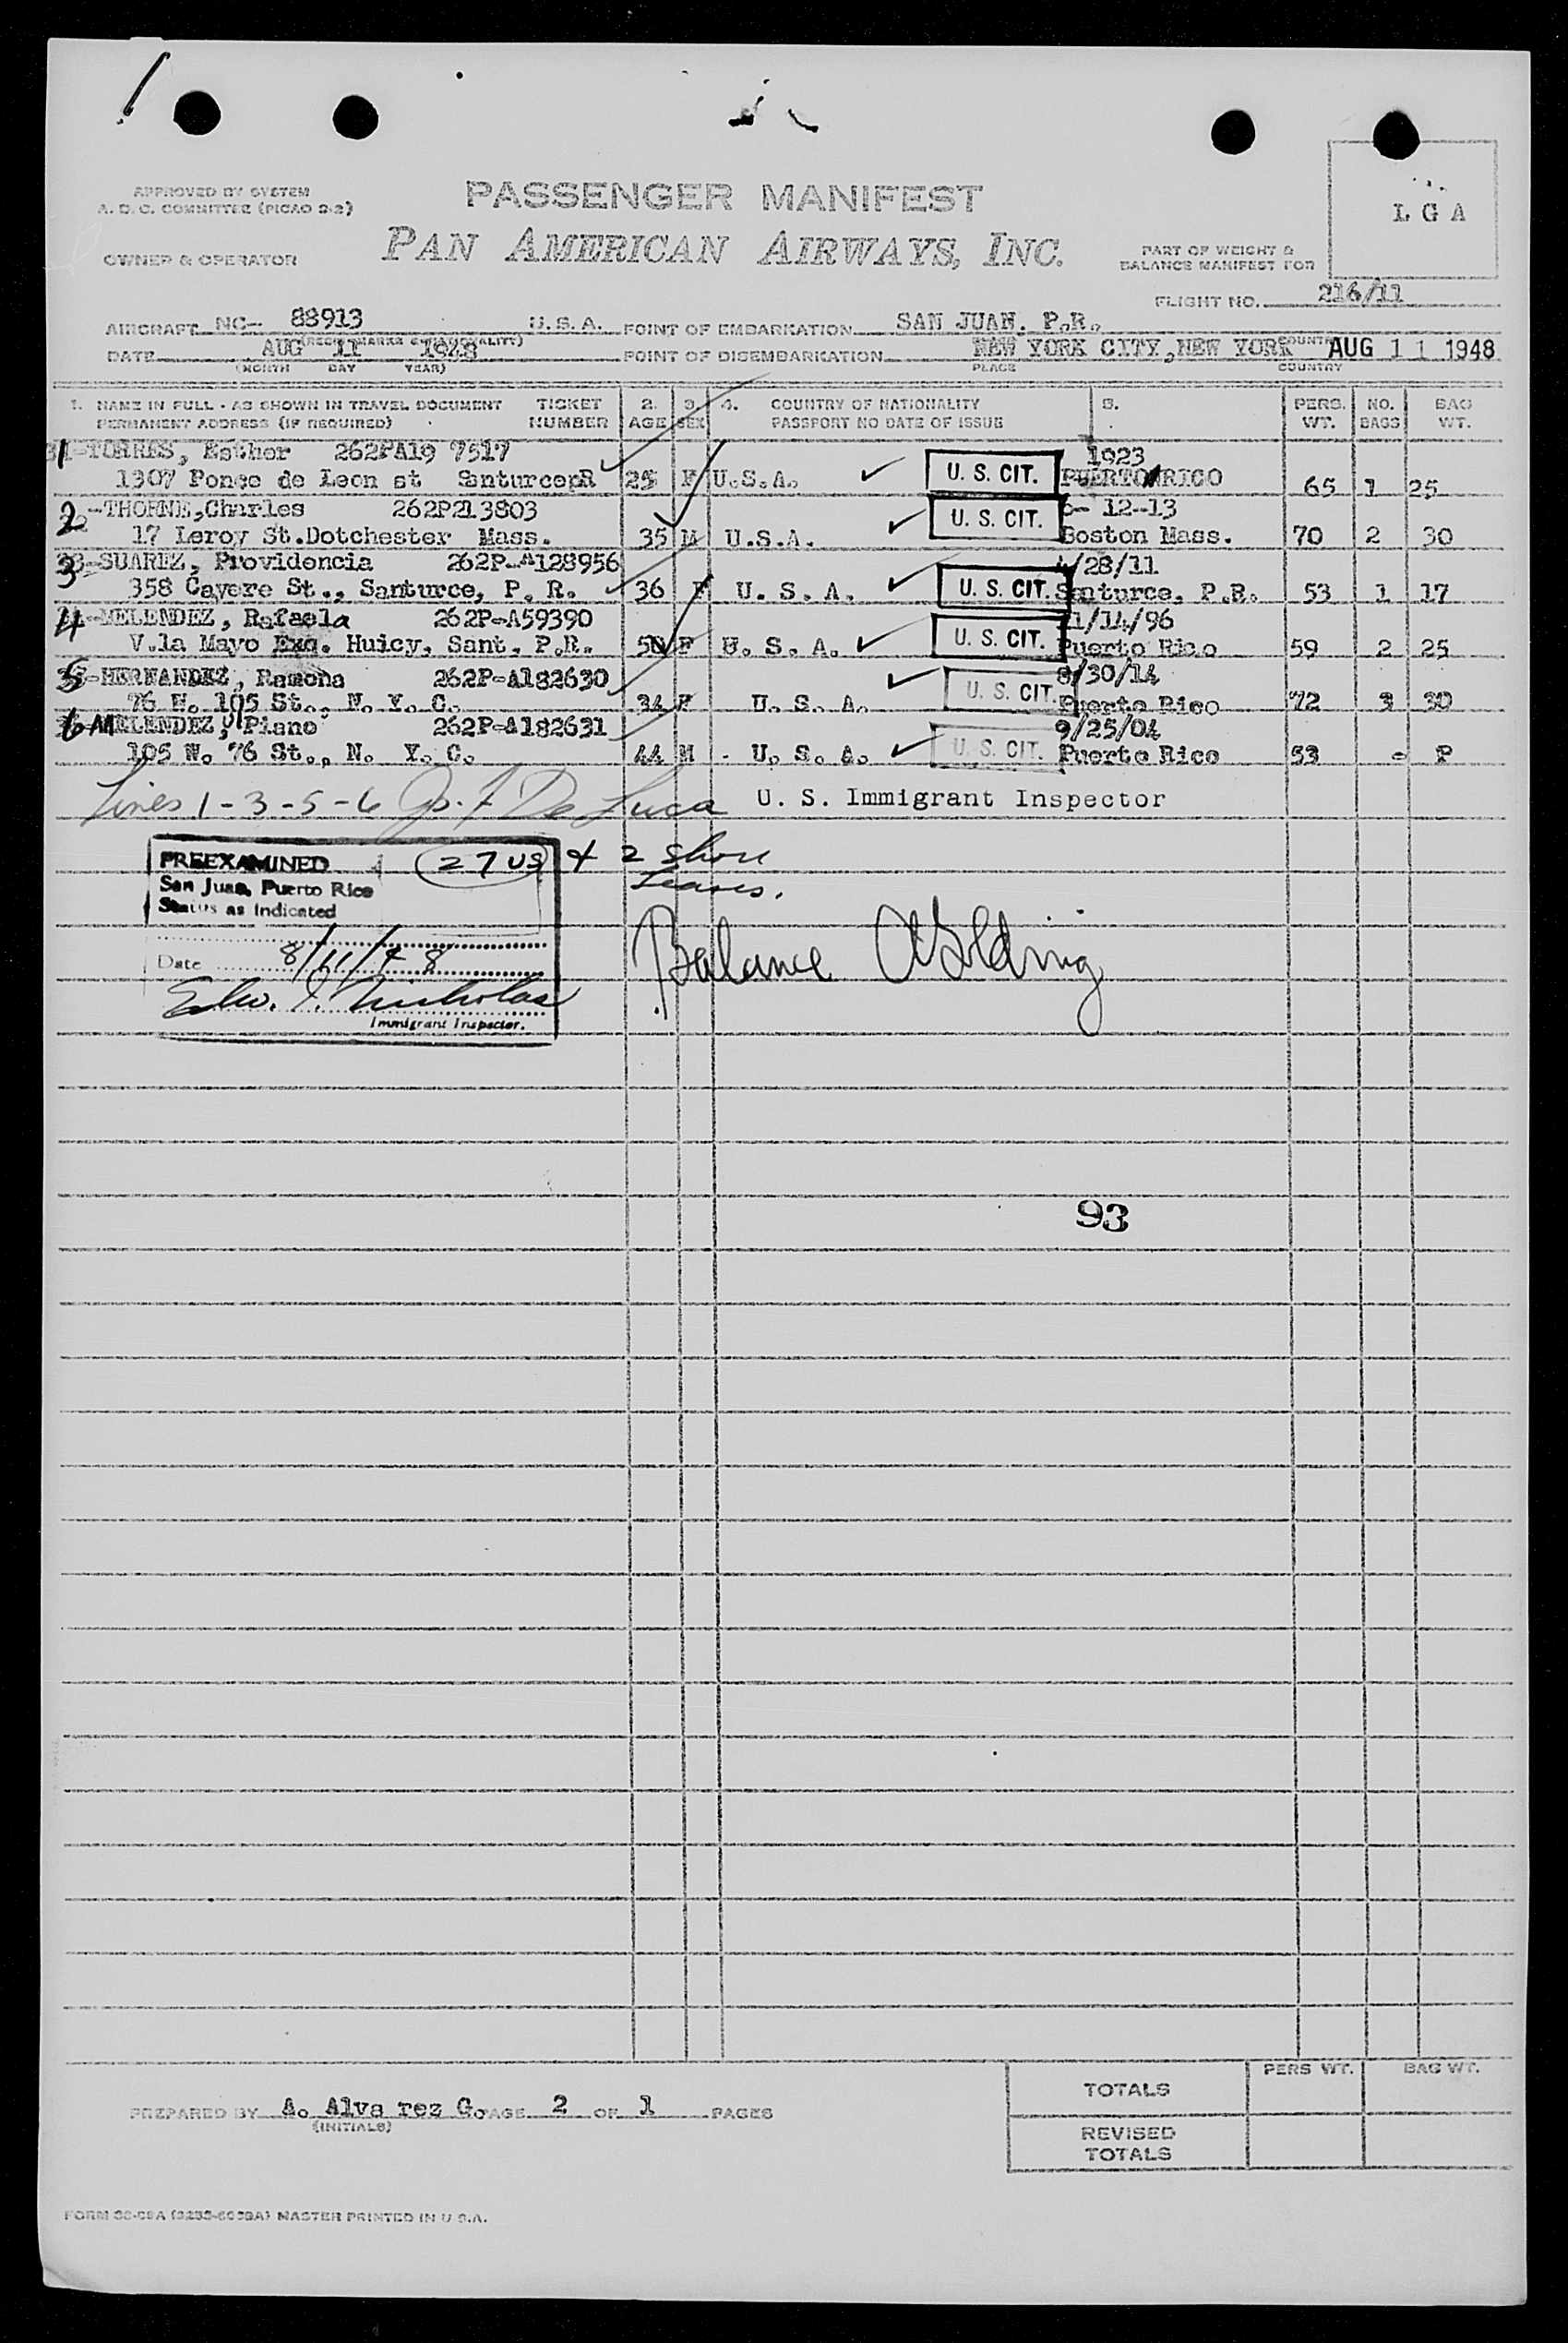 APPROVED BY SYSTEM
A. O. C. COMMITTEE (PICAO 9-2)
OWNER & OPERATOR
PASSENGER MANIFEST
PAN AMERICAN AIRWAYS, INC.
L G A
PART OF WEIGHT &
BALANCE MANIFEST FOR
FLIGHT NO. 216/11
AIRCRAFT NC- 88913 U.S.A. POINT OF EMBARKATION SAN JUAN. P.R.
DATE AUG 11 1948 POINT OF DISEMBARKATION NEW YORK CITY,NEW YORK AUG 11 1948
(MONTH DAY YEAR) PLACE COUNTRY
1. NAME IN FULL - AS SHOWN IN TRAVEL DOCUMENT TICKET 2. 3. 4. COUNTRY OF NATIONALITY 5. PERS. NO. BAG
PERMANENT ADDRESS (IF REQUIRED) NUMBER AGE SEX PASSPORT NO DATE OF ISSUE WT. BAGS WT.
1-TORRES, Esther 262PA19 7517 1923
1307 Ponce de Leon st SanturcepR 25 F U.S.A. U. S. CIT. PUERTO RICO 65 1 25
2-THORNE,Charles 262P213803 6- 12--13
17 Leroy St.Dotchester Mass. 35 M U.S.A. U. S. CIT. Boston Mass. 70 2 30
3-SUAREZ, Providencia 262P-A128956 4/28/11
358 Cayere St., Santurce, P. R. 36 F U. S. A. U. S. CIT. Santurce, P.R. 53 1 17
4-MELENDEZ, Rafaela 262P-A59390 11/14/96
V.la Mayo Exq. Huicy, Sant, P.R. 50 F U. S. A. U. S. CIT. Puerto Rico 59 2 25
5-HERNANDEZ, Ramona 262P-A182630 8/30/14
76 W. 105 St., N. Y. C. 34 F U. S. A. U. S. CIT. Puerto Rico 72 3 30
6 MELENDEZ, Plano 262P-A182631 9/25/04
105 W. 76 St., N. Y. C. 44 M - U. S. A. U. S. CIT. Puerto Rico 53 - P
Lines 1-3-5-6 Jo. F De Luca U. S. Immigrant Inspector
PREEXAMINED 27 US & 2 Shore
San Juan, Puerto Rico Leaves.
Status as Indicated
Balance
Date 8/11/48
Edw. J. Nicholas
Immigrant Inspector.
93
TOTALS PERS WT. BAG WT.
PREPARED BY A. Alva rez G. PAGE 2 OF 1 PAGES
(INITIALS)
REVISED
TOTALS
MASTER PRINTED IN U.S.A.